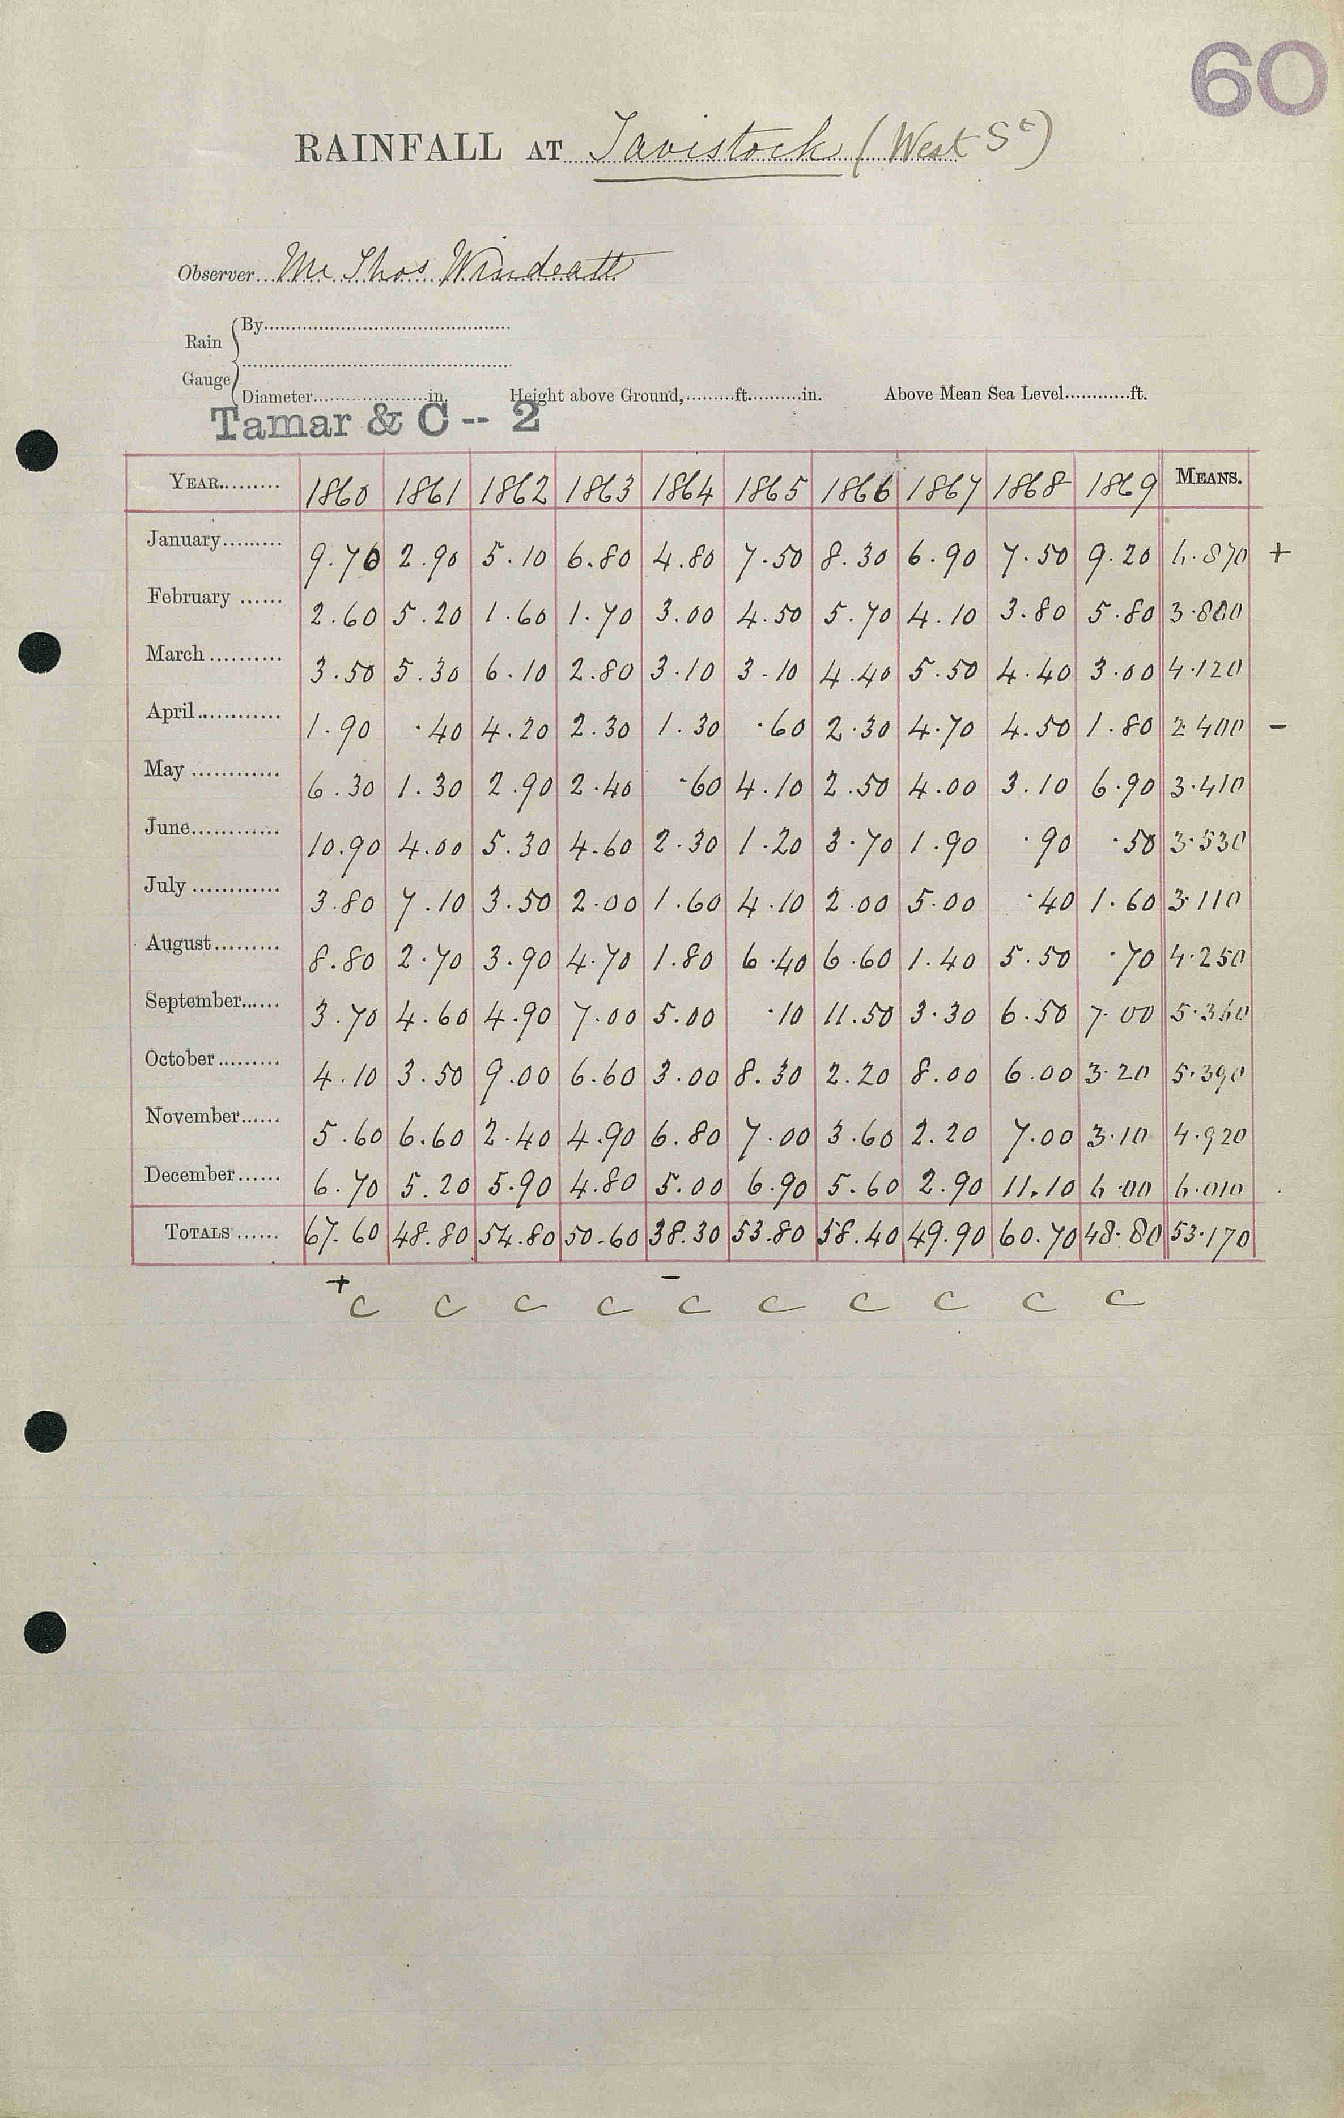 60
RAINFALL AT Tavistock (West St)
Observer Mr Thos. Windeatt
Rain Gauge
By
Diameter in. Height above Ground, ft. in. Above Mean Sea Level ft.
Tamar & C -- 2
YEAR 1860 1861 1862 1863 1864 1865 1866 1867 1868 1869 MEANS.
January 9.70 2.90 5.10 6.80 4.80 7.50 8.30 6.90 7.50 9.20 6.870 +
February 2.60 5.20 1.60 1.70 3.00 4.50 5.70 4.10 3.80 5.80 3.800
March 3.50 5.30 6.10 2.80 3.10 3.10 4.40 5.50 4.40 3.00 4.120
April 1.90 .40 4.20 2.30 1.30 .60 2.30 4.70 4.50 1.80 2.400 -
May 6.30 1.30 2.90 2.40 .60 4.10 2.50 4.00 3.10 6.90 3.410
June 10.90 4.00 5.30 4.60 2.30 1.20 3.70 1.90 .90 .50 3.530
July 3.80 7.10 3.50 2.00 1.60 4.10 2.00 5.00 .40 1.60 3.110
August 8.80 2.70 3.90 4.70 1.80 6.40 6.60 1.40 5.50 .70 4.250
September 3.70 4.60 4.90 7.00 5.00 .10 11.50 3.30 6.50 7.00 5.360
October 4.10 3.50 9.00 6.60 3.00 8.30 2.20 8.00 6.00 3.20 5.390
November 5.60 6.60 2.40 4.90 6.80 7.00 3.60 2.20 7.00 3.10 4.920
December 6.70 5.20 5.90 4.80 5.00 6.90 5.60 2.90 11.10 6.00 6.010
TOTALS 67.60 48.80 54.80 50.60 38.30 53.80 58.40 49.90 60.70 48.80 53.170
+ -
C C C C C C C C C C